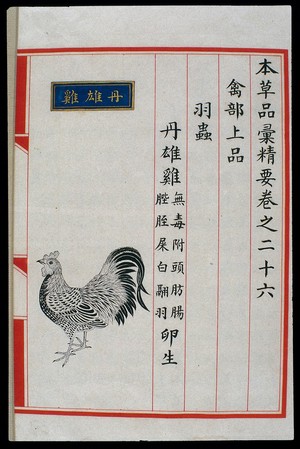 本草品彙精要卷之二十六
禽部上品
羽蟲
丹雄雞
無毒附頭肪腸
膍胵屎白翮羽
卵生
丹雄雞